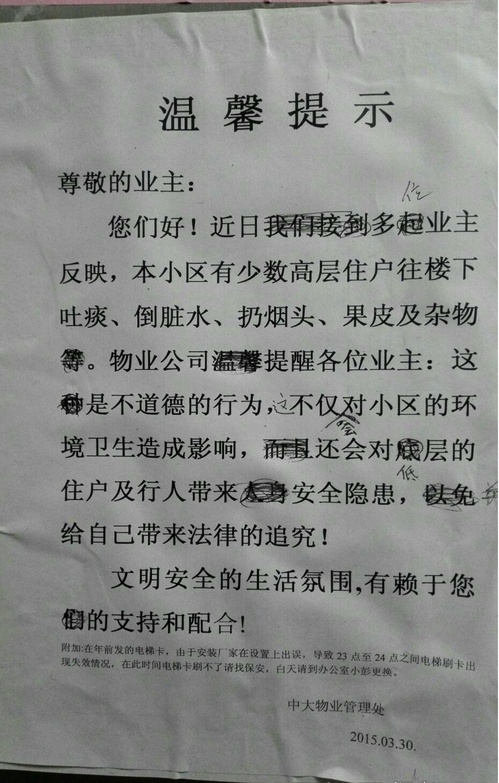 温馨提示
尊敬的业主：
位
您们好！近日我们接到多起业主
反映，本小区有少数高层住户往楼下
吐痰、倒脏水、扔烟头、果皮及杂物
等。物业公司温馨提醒各位业主：这
种是不道德的行为，这不仅对小区的环
会
境卫生造成影响，而且还会对底层的
低
住户及行人带来人身安全隐患，以免
给自己带来法律的追究！
文明安全的生活氛围,有赖于您
们的支持和配合!
附加:在年前发的电梯卡，由于安装厂家在设置上出误，导致 23 点至 24 点之间电梯刷卡出
现失效情况，在此时间电梯卡刷不了请找保安，白天请到办公室小彭更换。
中大物业管理处
2015.03.30.